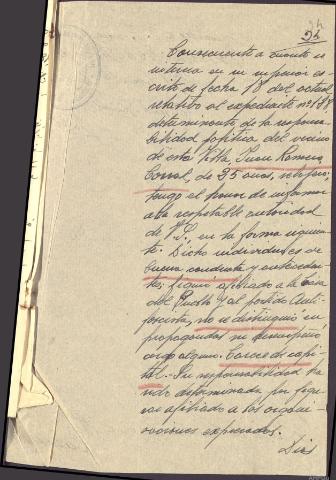 24
Consecuente a cuanto se
interesa en su superior es-
crito de fecha 18 del actual
relativo al expediente nº 188
determinante de la responsa-
bilidad politica del vecino
de esta Villa, Juan Romero
Corral, de 35 años,
tengo el honor de informar
a la respetable autoridad
de V.S., en la forma siguien-
te: Dicho individuo es de
buena conducta y anteceden-
tes; figuró afiliado a la Casa
del Pueblo y al partido Anti-
fascista, no se distinguió en
propagandas ni desempeñó
cargo alguno. Carece de capi-
tal.- Su responsabilidad ha
sido determinada por figu-
rar afiliado a las organi-
zaciones expresadas.
Dios